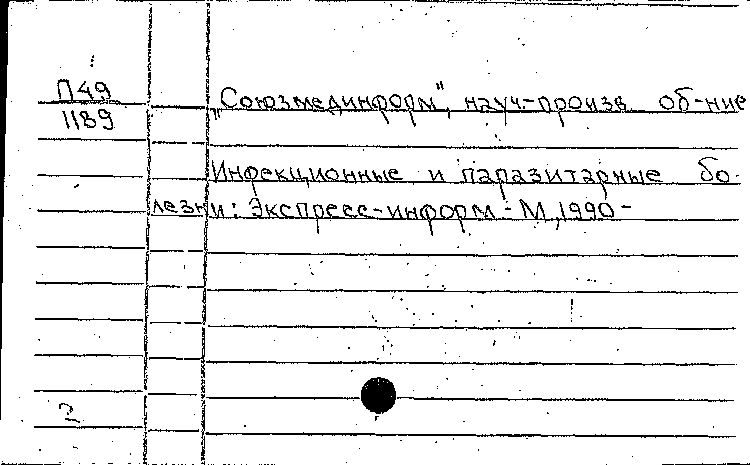 П49
1189
"Союзмединформ", науч-произв об-ние
Инфекционные и паразитарные бо-
лезни: Экспресс-информ - М, 1990 -
2